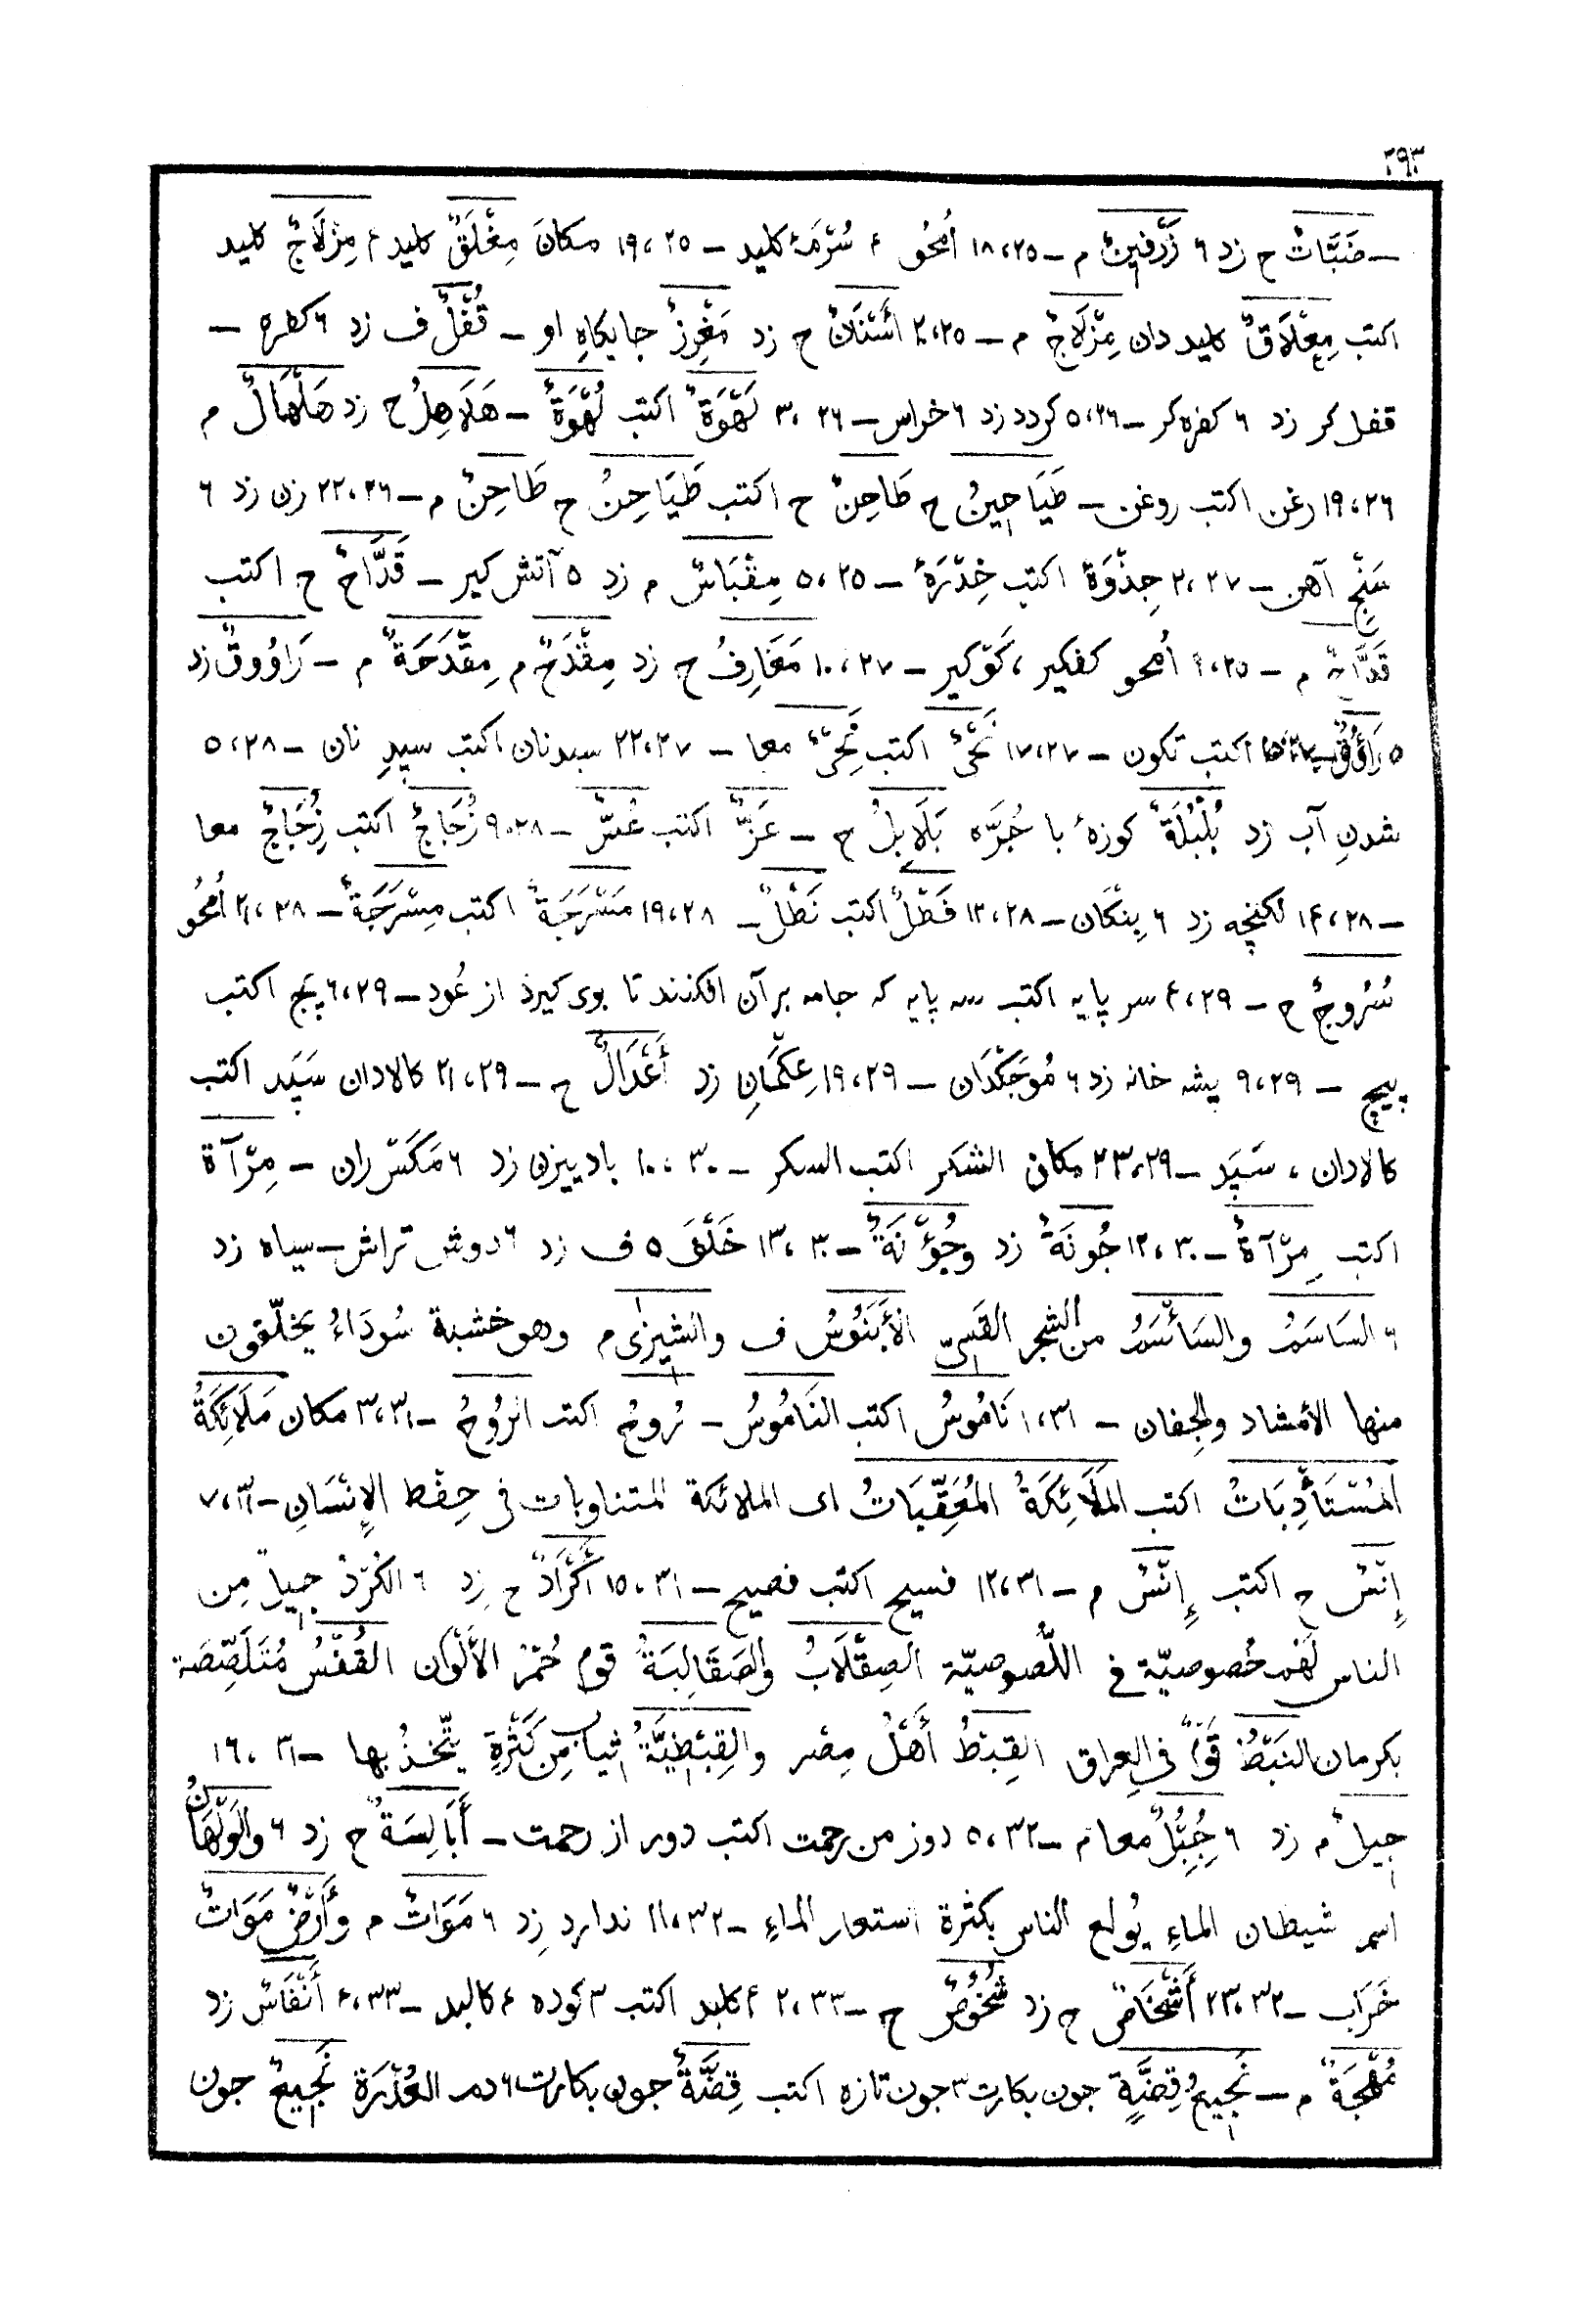 ٢٩٣
— ضَبَّاتٌ ح زد ٦ زَرْفِينٌ م — ١٨،٢٥ اُمحُو ٤ سُرْمَهٔ کلید — ١٩،٢٥ مکانَ مِغْلَقٌ کلید ٤ مِزْلَاجٌ کلید
اکتب مِغْلَاقٌ کلید دان مِزْلَاجٌ م — ٢٠،٢٥ أَسْنَانٌ ح زد مَغْرِزٌ جایکاهِ او — قُفْلٌ ف زد ٦ کطره —
قفل کر زد ٦ کفره کر — ٥،٢٦ کردد زد ٦ خراس — ٣،٢٦ لَهْوَةٌ اکتب لُهْوَةٌ — هَلَاهِلُ ح زد هَلْهَالٌ م
١٩،٢٦ رغن اکتب روغن — طَيَاحِينُ ح طَاحِنٌ ح اکتب طَيَاحِنُ ح طَاحِنٌ م — ٢٢،٢٦ زن زد ٦
سَنْجِ آهن — ٢،٢٧ جِذْوَة اکتب خِدْرَةٌ — ٥،٢٥ مِقْبَاسٌ م زد ٥ آتش کیر — قَدَّاحٌ ح اکتب
قَدَّاحَةٌ م — ٩،٢٥ اُمحو کفکیر، کَوْکیر — ١٠،٢٧ مَغَارِفُ ح زد مِقْدَحٌ م مِقْدَحَةٌ م — رَاوُوقٌ زد
٥ اکتب تکون — ١٧،٢٧ نَحْیٌ اکتب نِحْیٌ معا — ٢٢،٢٧ سبدنان اکتب سبدِ نان — ٥،٢٨
شدنِ آب زد بُلْبُلَةٌ کوزهٔ با جُرَّه بَلَابِلُ ح — عَزٌّ اکتب عُسٌّ — ٩،٢٨ زُجَاجٌ اکتب زِجَاجٌ معا
— ١٤،٢٨ لکنچه زد ٦ بِنْکَان — ١٣،٢٨ فَطْلٌ اکتب نَطْلٌ — ١٩،٢٨ مَسْرَجَةٌ اکتب مِسْرَجَةٌ — ٢١،٢٨ اُمحُو
سُرُوجٌ ح — ٤،٢٩ سر پایه اکتب سه پایه که جامه بر آن افکنند تا بوی کیرذ از عُود — ٦،٢٩ پج اکتب
پیچ — ٩،٢٩ پشه خانه زد ٦ مُوجَکْدَان — ١٩،٢٩ عِکْمَانِ زد أَعْدَالٌ ح — ٢١،٢٩ کالادان سَپَد اکتب
کالادان، سَپَد — ٢٣،٢٩ مکان الشکر اکتب السکر — ١٠،٣٠ بادبیزن زد ٦ مَکَس ران — مِرْآة
اکتب مِرْآةٌ — ١٢،٣٠ جُونَةٌ زد وجُؤْنَةٌ — ١٣،٣٠ خَلَقَ ٥ ف زد ٦ دوش تراش — سیاه زد
٦ السَاسَمُ والسَأْسَمُ من الشجر القَسِیّ الأَبَنُوسُ ف والشِیزٰی م وهو خشبة سُودَاءُ یخلّقون
منها الأمشاد والجِفان — ١،٣١ نَامُوسُ اکتب النَامُوسُ — رُوحُ اکتب الرُوحُ — ٣،٣١ مکان مَلَائِکَةُ
المُسْتَأْدِبَاتُ اکتب المَلَائِکَةُ المُعَقِّبَاتُ ای الملائکة المتناوبات فی حِفْظ الإِنْسَانِ — ٧،٣١
إِنْسٌ ح اکتب إِنْسٌ م — ١٢،٣١ فسیح اکتب فصیح — ١٥،٣١ أَکْرَادٌ ح زد ٦ الکُرْدُ جیلٌ مِن
الناس لَهُم خُصوصیّة فی اللُّصوصیّة الصِقْلَابُ والصَقَالِبَةُ قوم حُمْرُ الأَلْوَان القُفْسُ مُتَلَصِّصَة
بکرمان النَبَطُ قَوْمٌ فی العِراق القِبْطُ أَهْلُ مِصْر والقِبْطِیَّةُ ثیاب مِن کَثْرَةِ یتّخذُ بها — ١٦،٣١
جِیلٌ م زد ٦ جُبُلٌّ معا م — ٥،٣٢ دوز من رحمت اکتب دور از رحمت — أَبَالِسَةٌ ح زد ٦ والوَلْهَانُ
اسم شیطان الماءِ یُولع الناس بکثرة استعمار الماءِ — ١١،٣٢ ندارد زد ٦ مَوَاتٌ م وأَرْضٌ مَوَاتٌ
خَرَاب — ٢٣،٣٢ أَشْخَاصٌ ح زد شُخُوصٌ ح — ٢،٣٣ ٤ کلبد اکتب ٣ کوده ٤ کالبد — ٤،٣٣ أَنْفَاسٌ زد
مُهْجَةٌ م — نَجِیعُ قِضَّةٍ جون بکارت ٣ جون تازه اکتب قِضَّةٌ جون بکارت ٦ دم العُذْرَة نَجِیعٌ جون